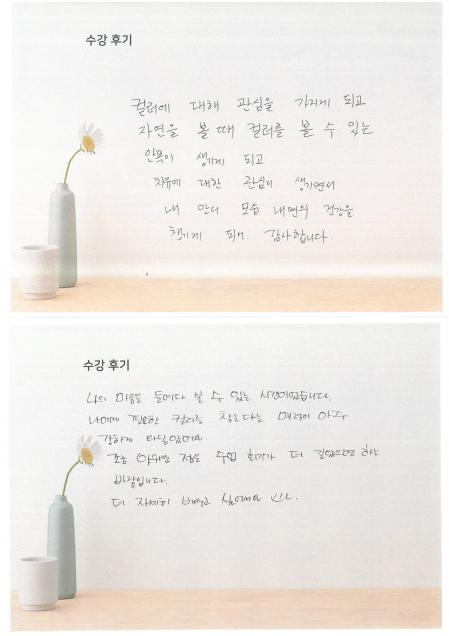 수강 후기
컬러에 대해 관심을 가지게 되고
자연을 볼 때 컬러를 볼 수 있는
안목이 생기게 되고
치유에 대한 관심이 생기면서
내 안의 모습 내면의 건강을
챙기게 되어 감사합니다
수강 후기
나의 마음을 들여다 볼 수 있는 시간이었습니다.
나에게 필요한 컬러를 찾는다는 매력이 아주
강하게 와닿았어요.
조금 아쉬운 점은 수업 회차가 더 길었으면 하는
바람입니다.
더 자세히 배우고 싶어요